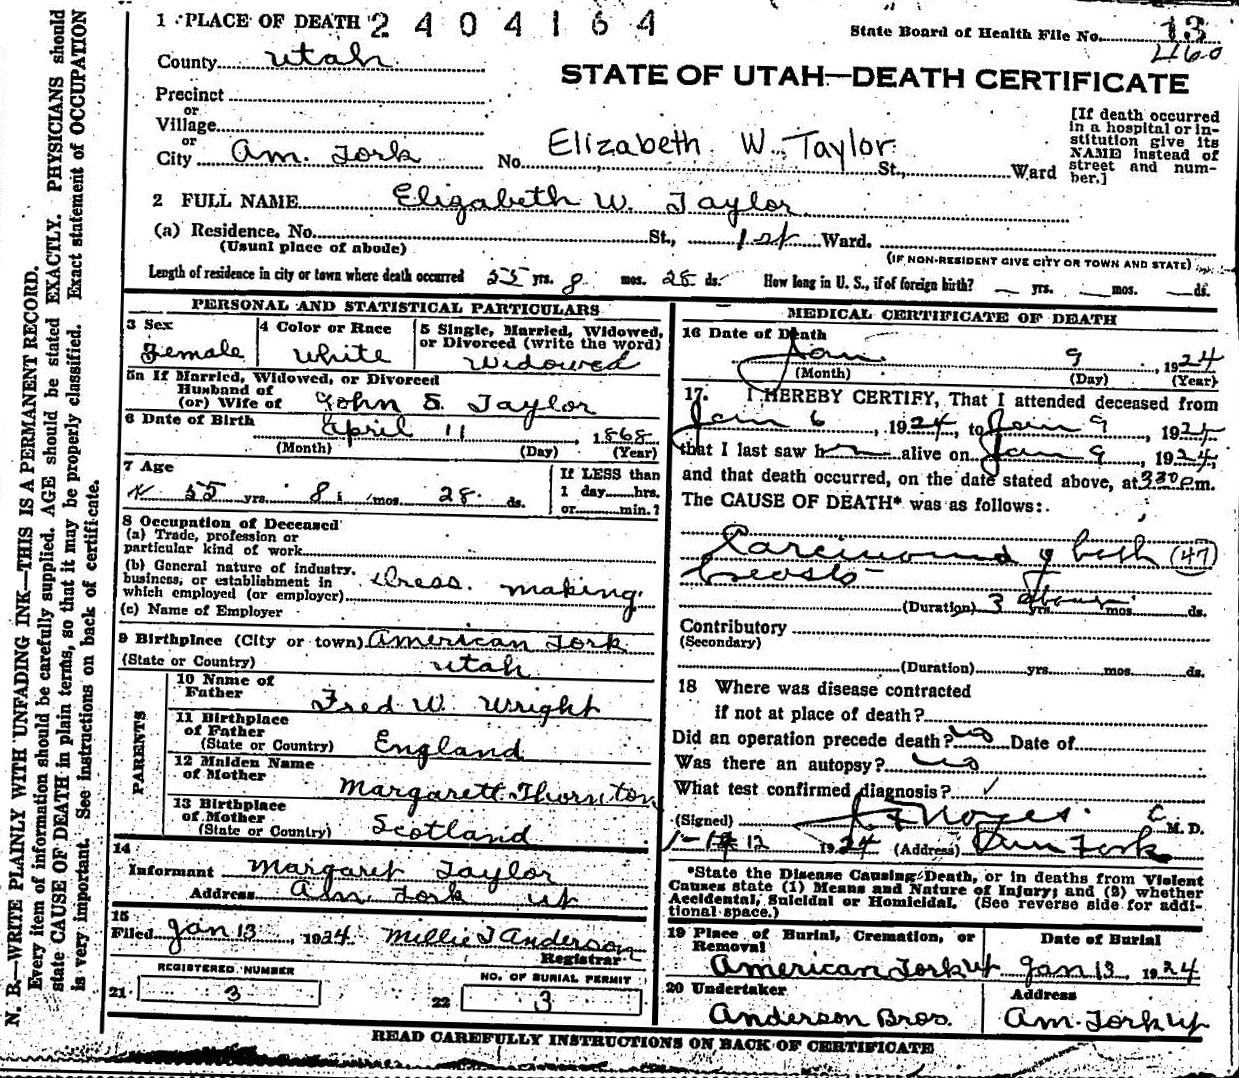 1 PLACE OF DEATH 2404164
State Board of Health File No. 13
460
County Utah
STATE OF UTAH—DEATH CERTIFICATE
Precinct
or
Village
or
City Am. Fork No. Elizabeth W. Taylor St., Ward
[If death occurred
in a hospital or in-
stitution give its
NAME instead of
street and num-
ber.]
2 FULL NAME Elizabeth W. Taylor
(a) Residence. No. St., 1st Ward.
(Usual place of abode)
(IF NON-RESIDENT GIVE CITY OR TOWN AND STATE)
Length of residence in city or town where death occurred 55 yrs. 8 mos. 28 ds. How long in U. S., if of foreign birth? — yrs. — mos. — ds.
PERSONAL AND STATISTICAL PARTICULARS
3 Sex
Female
4 Color or Race
White
5 Single, Married, Widowed,
or Divorced (write the word)
Widowed
5a If Married, Widowed, or Divorced
Husband of
(or) Wife of John S. Taylor
6 Date of Birth April 11, 1868
(Month) (Day) (Year)
7 Age
55 yrs. 8 mos. 28 ds.
If LESS than
1 day hrs.
or min.?
8 Occupation of Deceased
(a) Trade, profession or
particular kind of work
(b) General nature of industry,
business, or establishment in
which employed (or employer) dress making
(c) Name of Employer
9 Birthplace (City or town) American Fork
(State or Country) Utah
PARENTS
10 Name of
Father Fred W. Wright
11 Birthplace
of Father
(State or Country) England
12 Maiden Name
of Mother Margarett Thornton
13 Birthplace
of Mother
(State or Country) Scotland
14
Informant Margaret Taylor
Address Am. Fork Ut
15
Filed Jan 13, 1924 Millie J Anderson
Registrar
REGISTERED NUMBER
21 3
NO. OF BURIAL PERMIT
22 3
MEDICAL CERTIFICATE OF DEATH
16 Date of Death
Jan. 9, 1924
(Month) (Day) (Year)
17. I HEREBY CERTIFY, That I attended deceased from
Jan 6, 1924, to Jan 9, 1924
that I last saw h alive on Jan 9, 1924,
and that death occurred, on the date stated above, at 3 30 p.m.
The CAUSE OF DEATH* was as follows:
Carcinoma of both (47)
breasts
(Duration) 3 yrs. mos. ds.
Contributory
(Secondary)
(Duration) yrs. mos. ds.
18 Where was disease contracted
if not at place of death?
Did an operation precede death? no Date of
Was there an autopsy? no
What test confirmed diagnosis? ✓
(Signed) Noyes. M. D.
12 1924 (Address) Am Fork
*State the Disease Causing Death, or in deaths from Violent
Causes state (1) Means and Nature of Injury; and (2) whether
Accidental, Suicidal or Homicidal. (See reverse side for addi-
tional space.)
19 Place of Burial, Cremation, or
Removal
American Fork Ut
Date of Burial
Jan 13 1924
20 Undertaker
Anderson Bros.
Address
Am. Fork Ut
READ CAREFULLY INSTRUCTIONS ON BACK OF CERTIFICATE
N. B.—WRITE PLAINLY WITH UNFADING INK—THIS IS A PERMANENT RECORD.
Every item of information should be carefully supplied. AGE should be stated EXACTLY. PHYSICIANS should
state CAUSE OF DEATH in plain terms, so that it may be properly classified. Exact statement of OCCUPATION
is very important. See instructions on back of certificate.